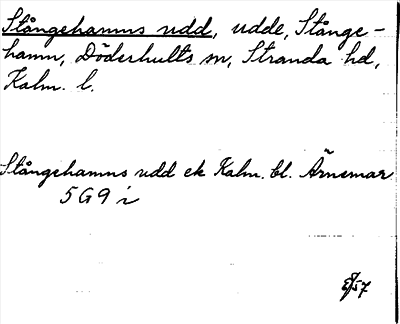 Stångehamns udd, udde, Stånge-
hamn, Döderhults sn, Stranda hd,
Kalm. l.
Stångehamns udd ek Kalm. bl. Ärnemar
5 G 9 i
57